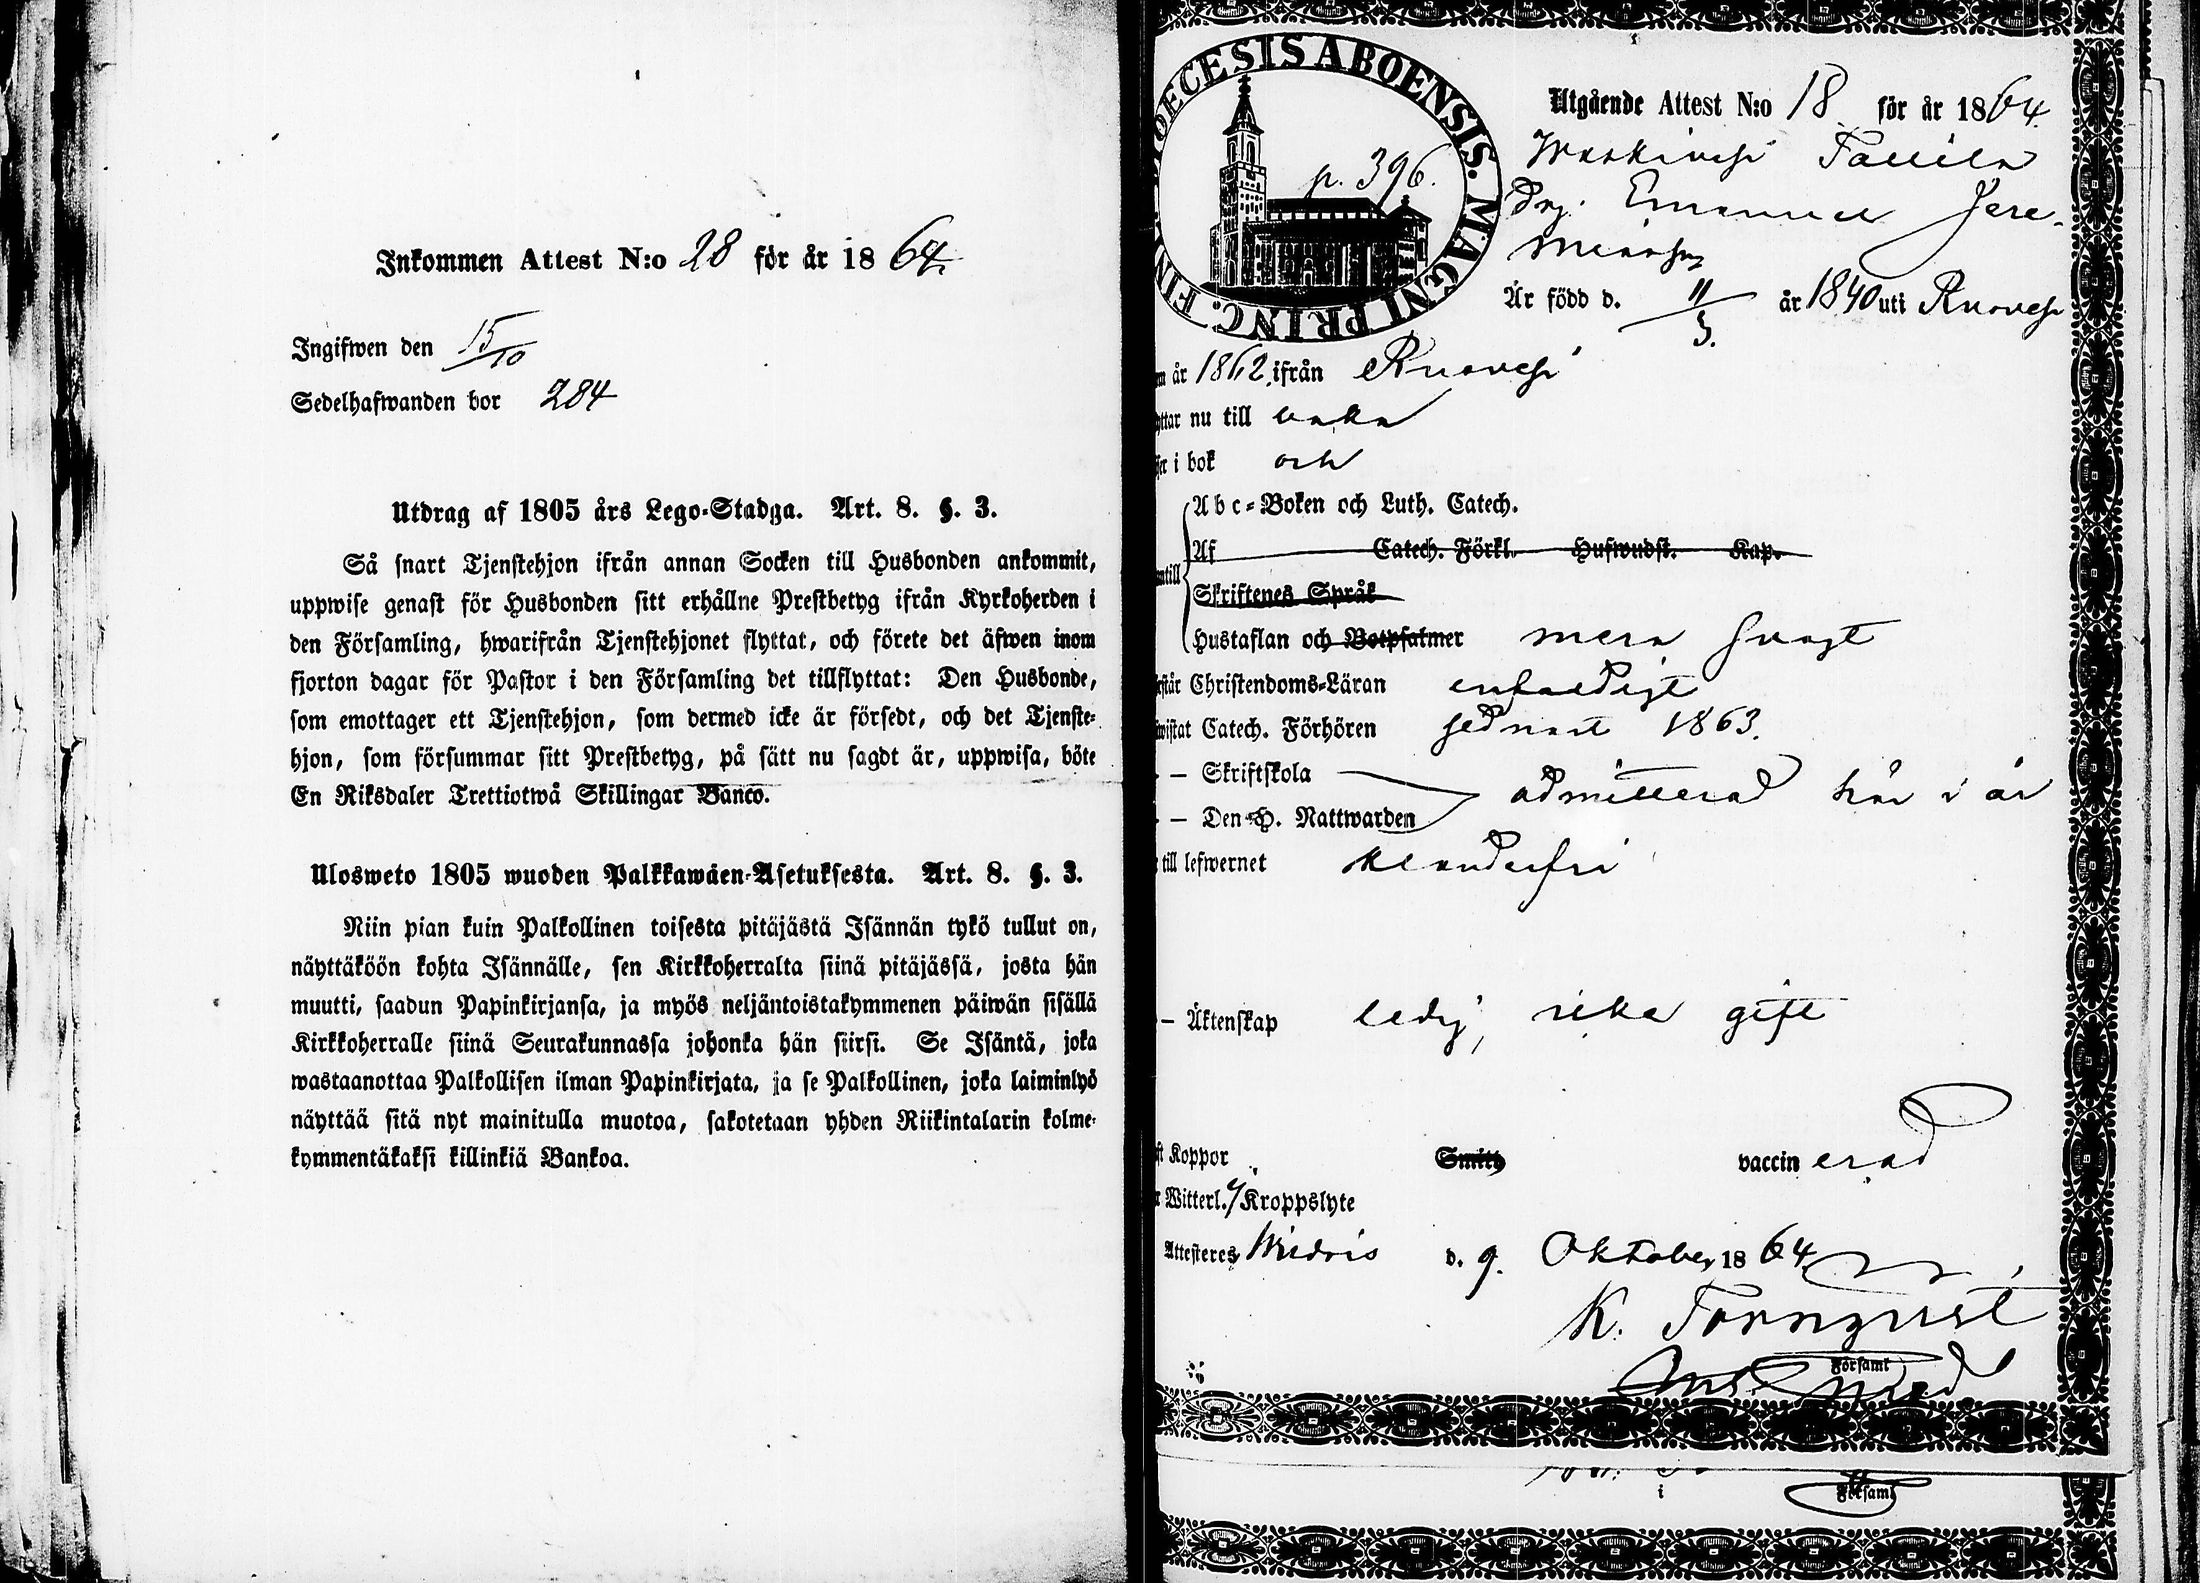 Inkommen Attest N:o 28 för år 1864.
Ingifwen den 15/10
Sedelhafwanden bor 284
Utdrag af 1805 års Lego-Stadga. Art. 8. §. 3.
Så snart Tjenstehjon ifrån annan Socken till Husbonden ankommit,
uppwise genast för Husbonden sitt erhållne Prestbetyg ifrån Kyrkoherden i
den Församling, hwarifrån Tjenstehjonet flyttat, och förete det äfwen inom
fjorton dagar för Pastor i den Församling det tillflyttat: Den Husbonde,
som emottager ett Tjenstehjon, som dermed icke är försedt, och det Tjenste-
hjon, som försummar sitt Prestbetyg, på sätt nu sagdt är, uppwisa, böte
En Riksdaler Trettiotwå Skillingar Banco.
Ulosweto 1805 wuoden Palkkawäen-Asetuksesta. Art. 8. §. 3.
Niin pian kuin Palkollinen toisesta pitäjästä Isännän tykö tullut on,
näyttäköön kohta Isännälle, sen Kirkkoherralta siinä pitäjässä, josta hän
muutti, saadun Papinkirjansa, ja myös neljäntoistakymmenen päiwän sisällä
Kirkkoherralle siinä Seurakunnassa johonka hän siirsi. Se Isäntä, joka
wastaanottaa Palkollisen ilman Papinkirjata, ja se Palkollinen, joka laiminlyö
näyttää sitä nyt mainitulla muotoa, sakotetaan yhden Riikintalarin kolme-
kymmentäkaksi killinkiä Bankoa.
DIOECESIS ABOENSIS. MAGNI PRINC. FIN
p. 396.
Utgående Attest N:o 18 för år 1864.
Drg. Emanuel Jere-
miasson
Är född d. 11/3. år 1840 uti Ruovesi
år 1862 ifrån Ruovesi
nu till
i bok och
Abc-Boken och Luth. Catech.
Af Catech. Förkl. Hufwudst. Kap.
Skriftenes Språk
Hustaflan och Botpsalmer mera svagt
Christendoms-Läran enfaldigt
Catech. Förhören sednast 1863.
— Skriftskola
admitterad här i år
— Den H. Nattwarden
till lefwernet klanderfri
— Äktenskap ledig, icke gift
Koppor Smitt vaccinerad
Witterl. Kroppslyte
Attesteres d. 9. Oktober 1864
K. Tornqvist
Församl
i Församl